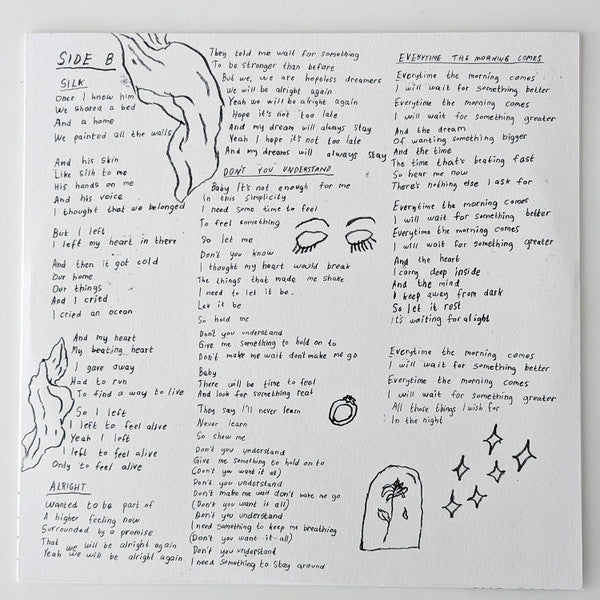 SIDE B
SILK
Once I knew him
We shared a bed
And a home
We painted all the walls
And his skin
Like silk to me
His hands on me
And his voice
I thought that we belonged
But I left
I left my heart in there
And then it got cold
Our home
Our things
And I cried
I cried an ocean
And my heart
My beating heart
I gave away
Had to run
To find a way to live
So I left
I left to feel alive
Yeah I left
I left to feel alive
Only to feel alive
ALRIGHT
Wanted to be part of
A higher feeling now
Surrounded by a promise
That we will be alright again
Yeah we will be alright again
They told me wait for something
To be stronger than before
But we, we are hopeless dreamers
We will be alright again
Yeah we will be alright again
Hope it's not too late
And my dream will always stay
Yeah I hope it's not too late
And my dreams will always stay
DON'T YOU UNDERSTAND
Baby It's not enough for me
In this simplicity
I need some time to feel
To feel something
So let me
Don't you know
I thought my heart would break
The things that made me shake
I need to let it be.
Let it be
So hold me
Don't you understand
Give me something to hold on to
Don't make me wait don't make me go
Baby
There will be time to feel
And look for something real
They say I'll never learn
Never learn
So show me
Don't you understand
Give me something to hold on to
(Don't you want it all)
Don't you understand
Don't make me wait don't make me go
(Don't you want it all)
Don't you understand
I need something to keep me breathing
(Don't you want it all)
Don't you understand
I need something to stay around
EVERYTIME THE MORNING COMES
Everytime the morning comes
I will wait for something better
Everytime the morning comes
I will wait for something greater
And the dream
Of wanting something bigger
And the time
The time that's beating fast
So hear me now
There's nothing else I ask for
Everytime the morning comes
I will wait for something better
Everytime the morning comes
I will wait for something greater
And the heart
I carry deep inside
And the mind
I keep away from dark
So let it rest
It's waiting for a light
Everytime the morning comes
I will wait for something better
Everytime the morning comes
I will wait for something greater
All those things I wish for
In the night